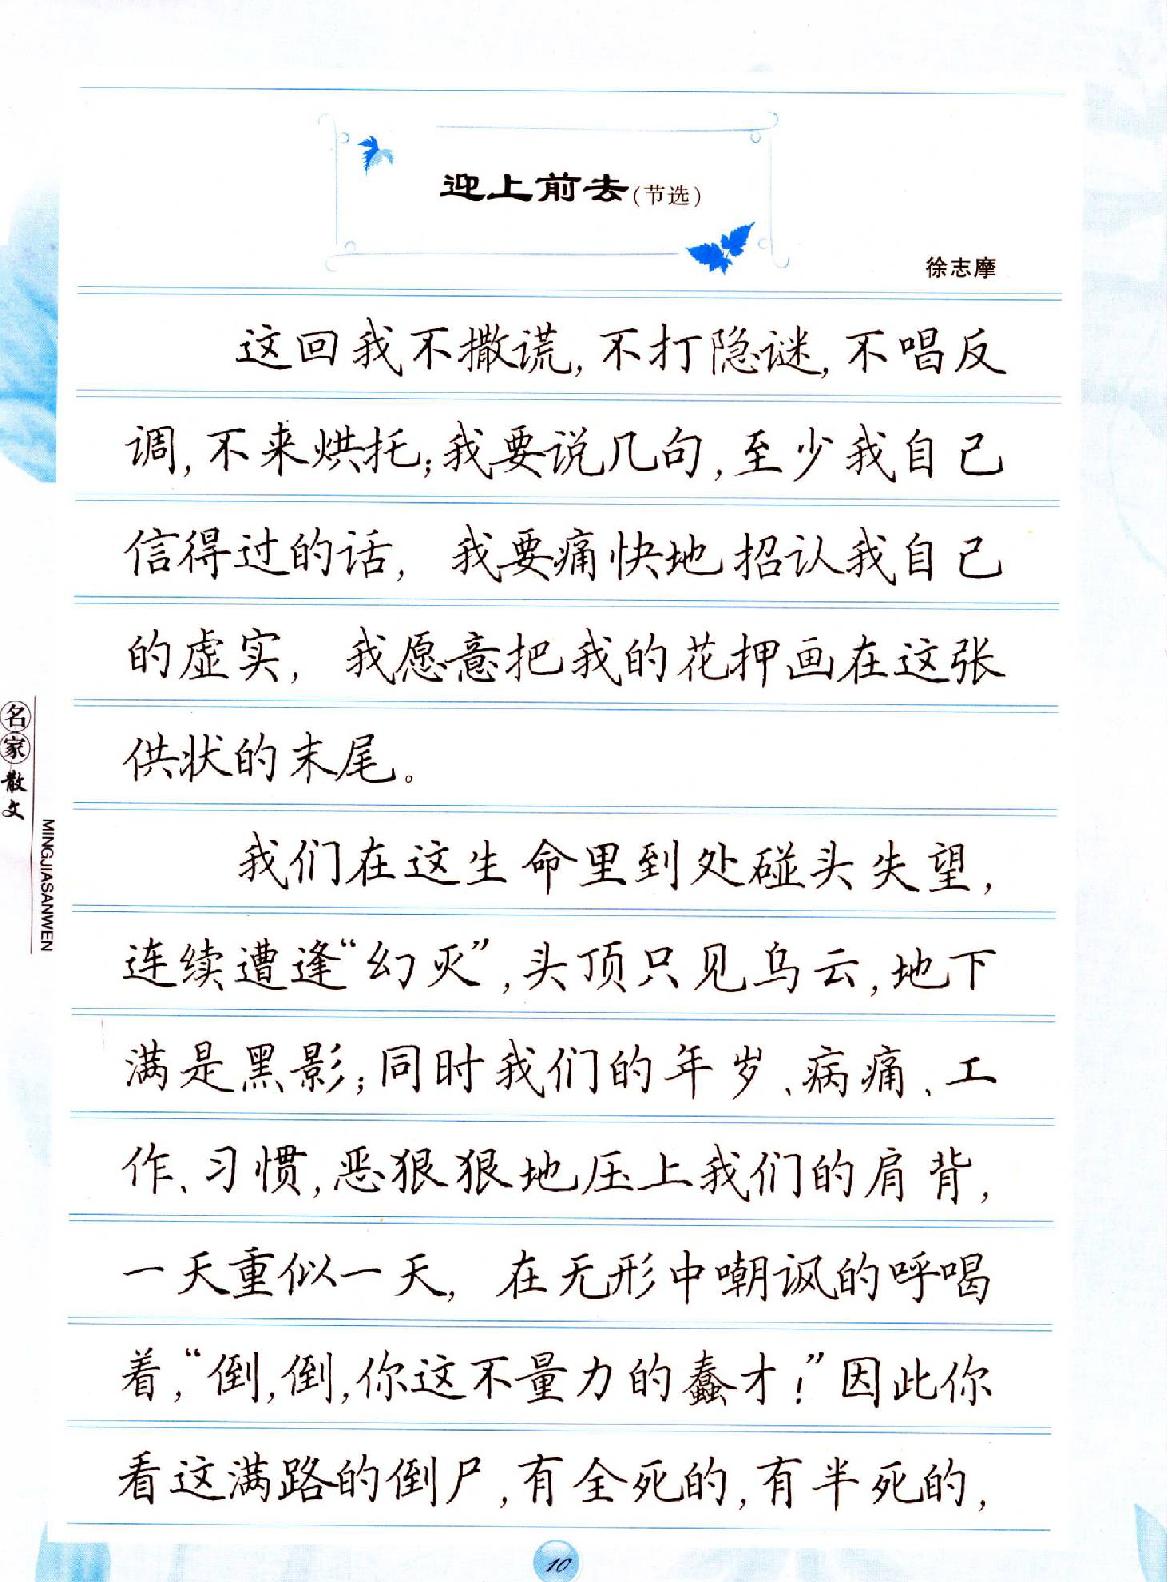 迎上前去(节选)
徐志摩
这回我不撒谎,不打隐谜,不唱反
调,不来烘托;我要说几句,至少我自己
信得过的话,我要痛快地招认我自己
的虚实,我愿意把我的花押画在这张
供状的末尾。
我们在这生命里到处碰头失望,
连续遭逢“幻灭”,头顶只见乌云,地下
满是黑影;同时我们的年岁、病痛、工
作、习惯,恶狠狠地压上我们的肩背,
一天重似一天,在无形中嘲讽的呼喝
着,“倒,倒,你这不量力的蠢才!”因此你
看这满路的倒尸,有全死的,有半死的,
名家散文
MINGJIASANWEN
10